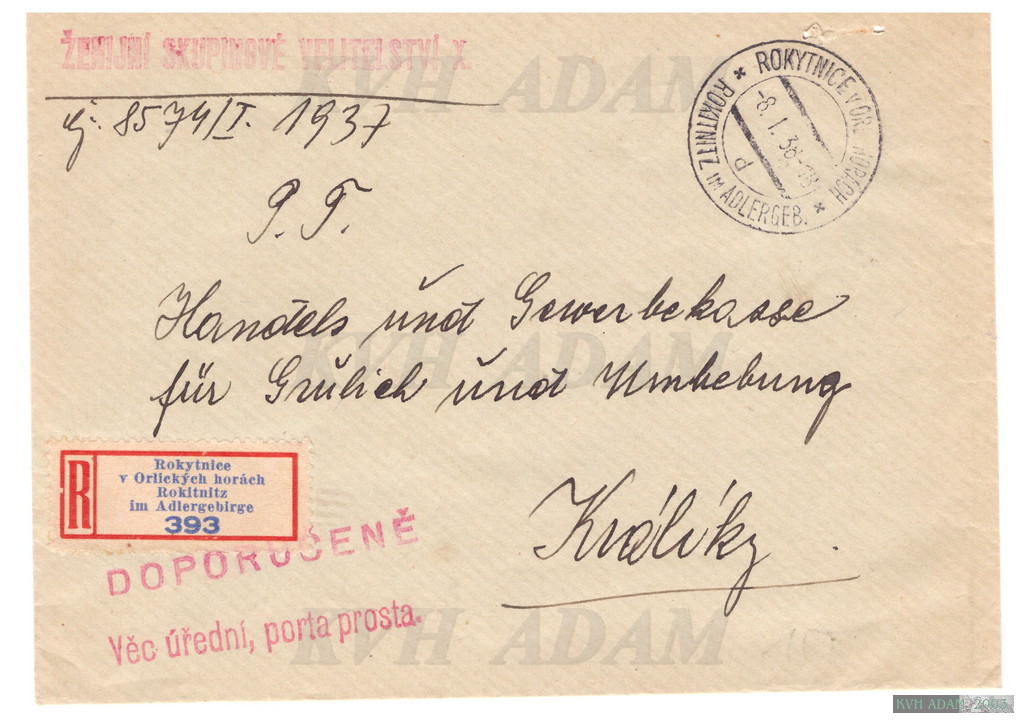 ŽENIJNÍ SKUPINOVÉ VELITELSTVÍ X.
čj. 8574/I. 1937
ROKYTNICE V ORL. HORÁCH
ROKITNITZ IM ADLERGEB.
-8.I.38
d
P. T.
Handels und Gewerbekasse
für Grulich und Umhebung
R
Rokytnice
v Orlických horách
Rokitnitz
im Adlergebirge
393
Králíky.
DOPORUČENĚ
Věc úřední, porta prosta.
KVH ADAM
KVH ADAM
KVH ADAM
KVH ADAM 2005